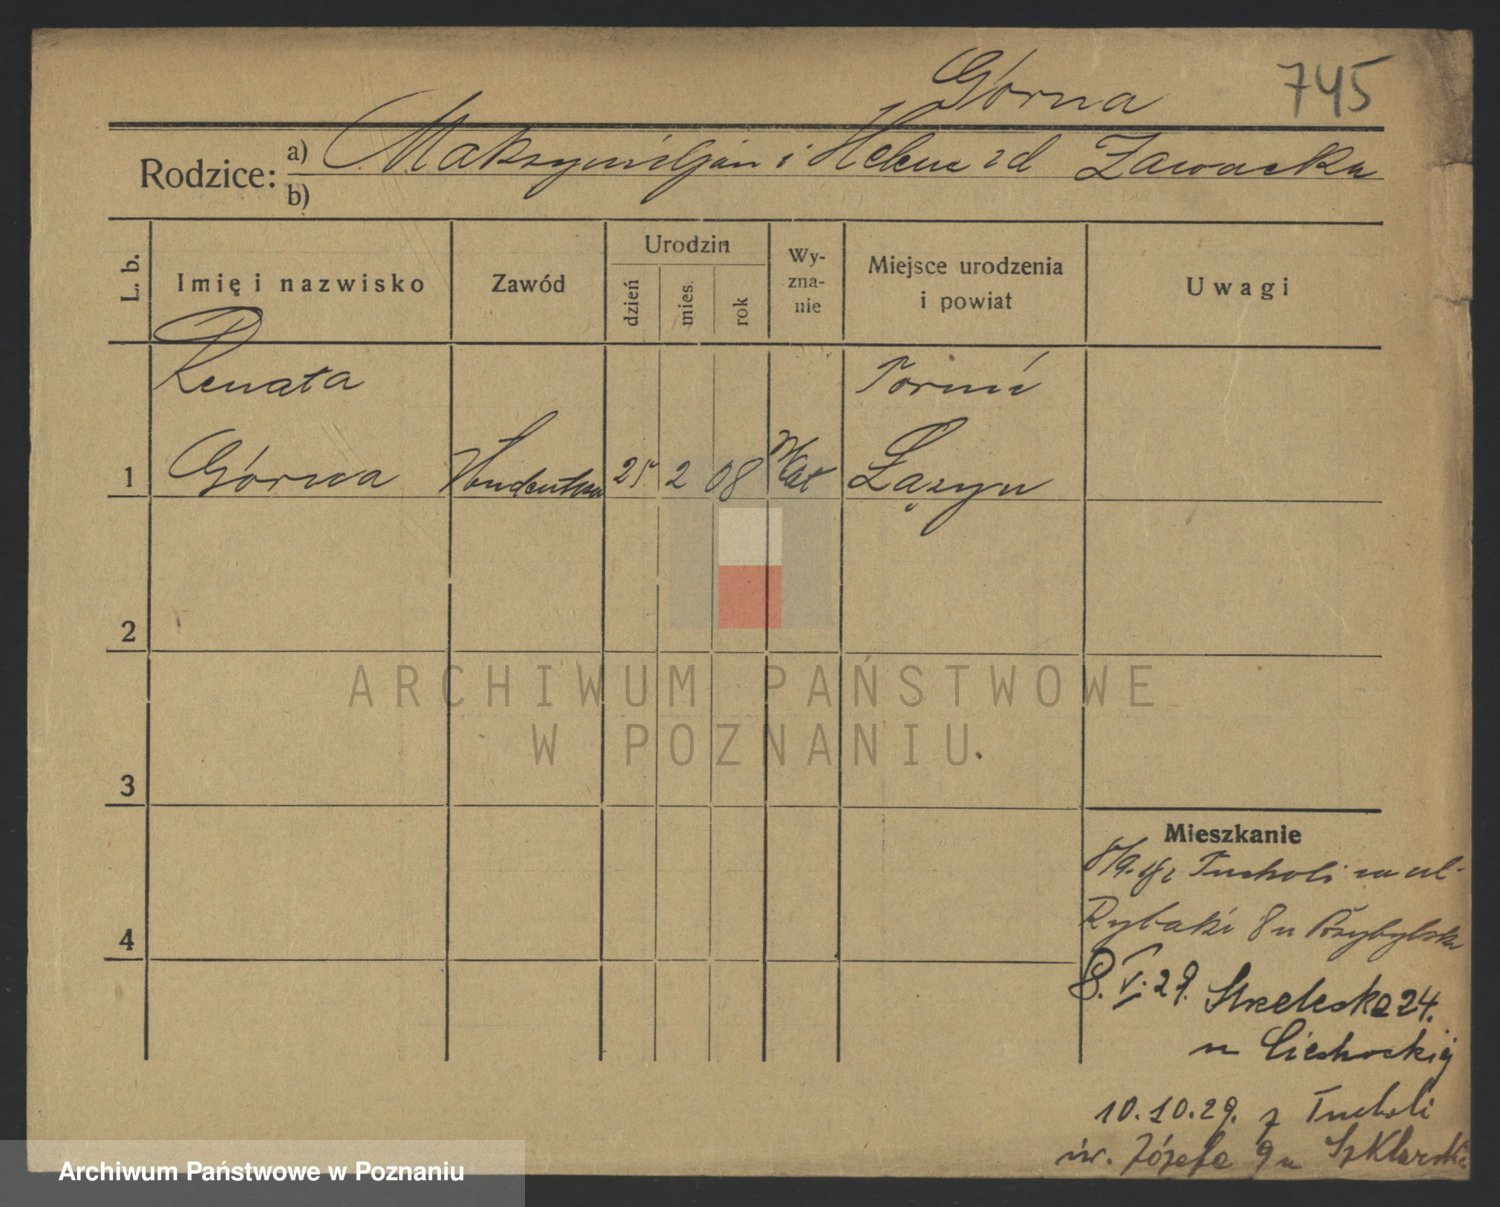 Górna 745
Rodzice: a) Maksymiljan i Helena zd Zawacka
b)
L. b. Imię i nazwisko Zawód Urodzin dzień mies. rok Wy-zna-nie Miejsce urodzenia i powiat Uwagi
Renata Toruń
1 Górna Studentka 25 2 08 Kat Łążyn
2
3
4
Mieszkanie
z Tucholi na ul.
Rybaki 8 u Przybylska
8. V. 29. Strzelecka 24.
u Cichockiej
10.10.29. z Tucholi
św. Józefa 9 u Szklarska
ARCHIWUM PAŃSTWOWE
W POZNANIU
Archiwum Państwowe w Poznaniu